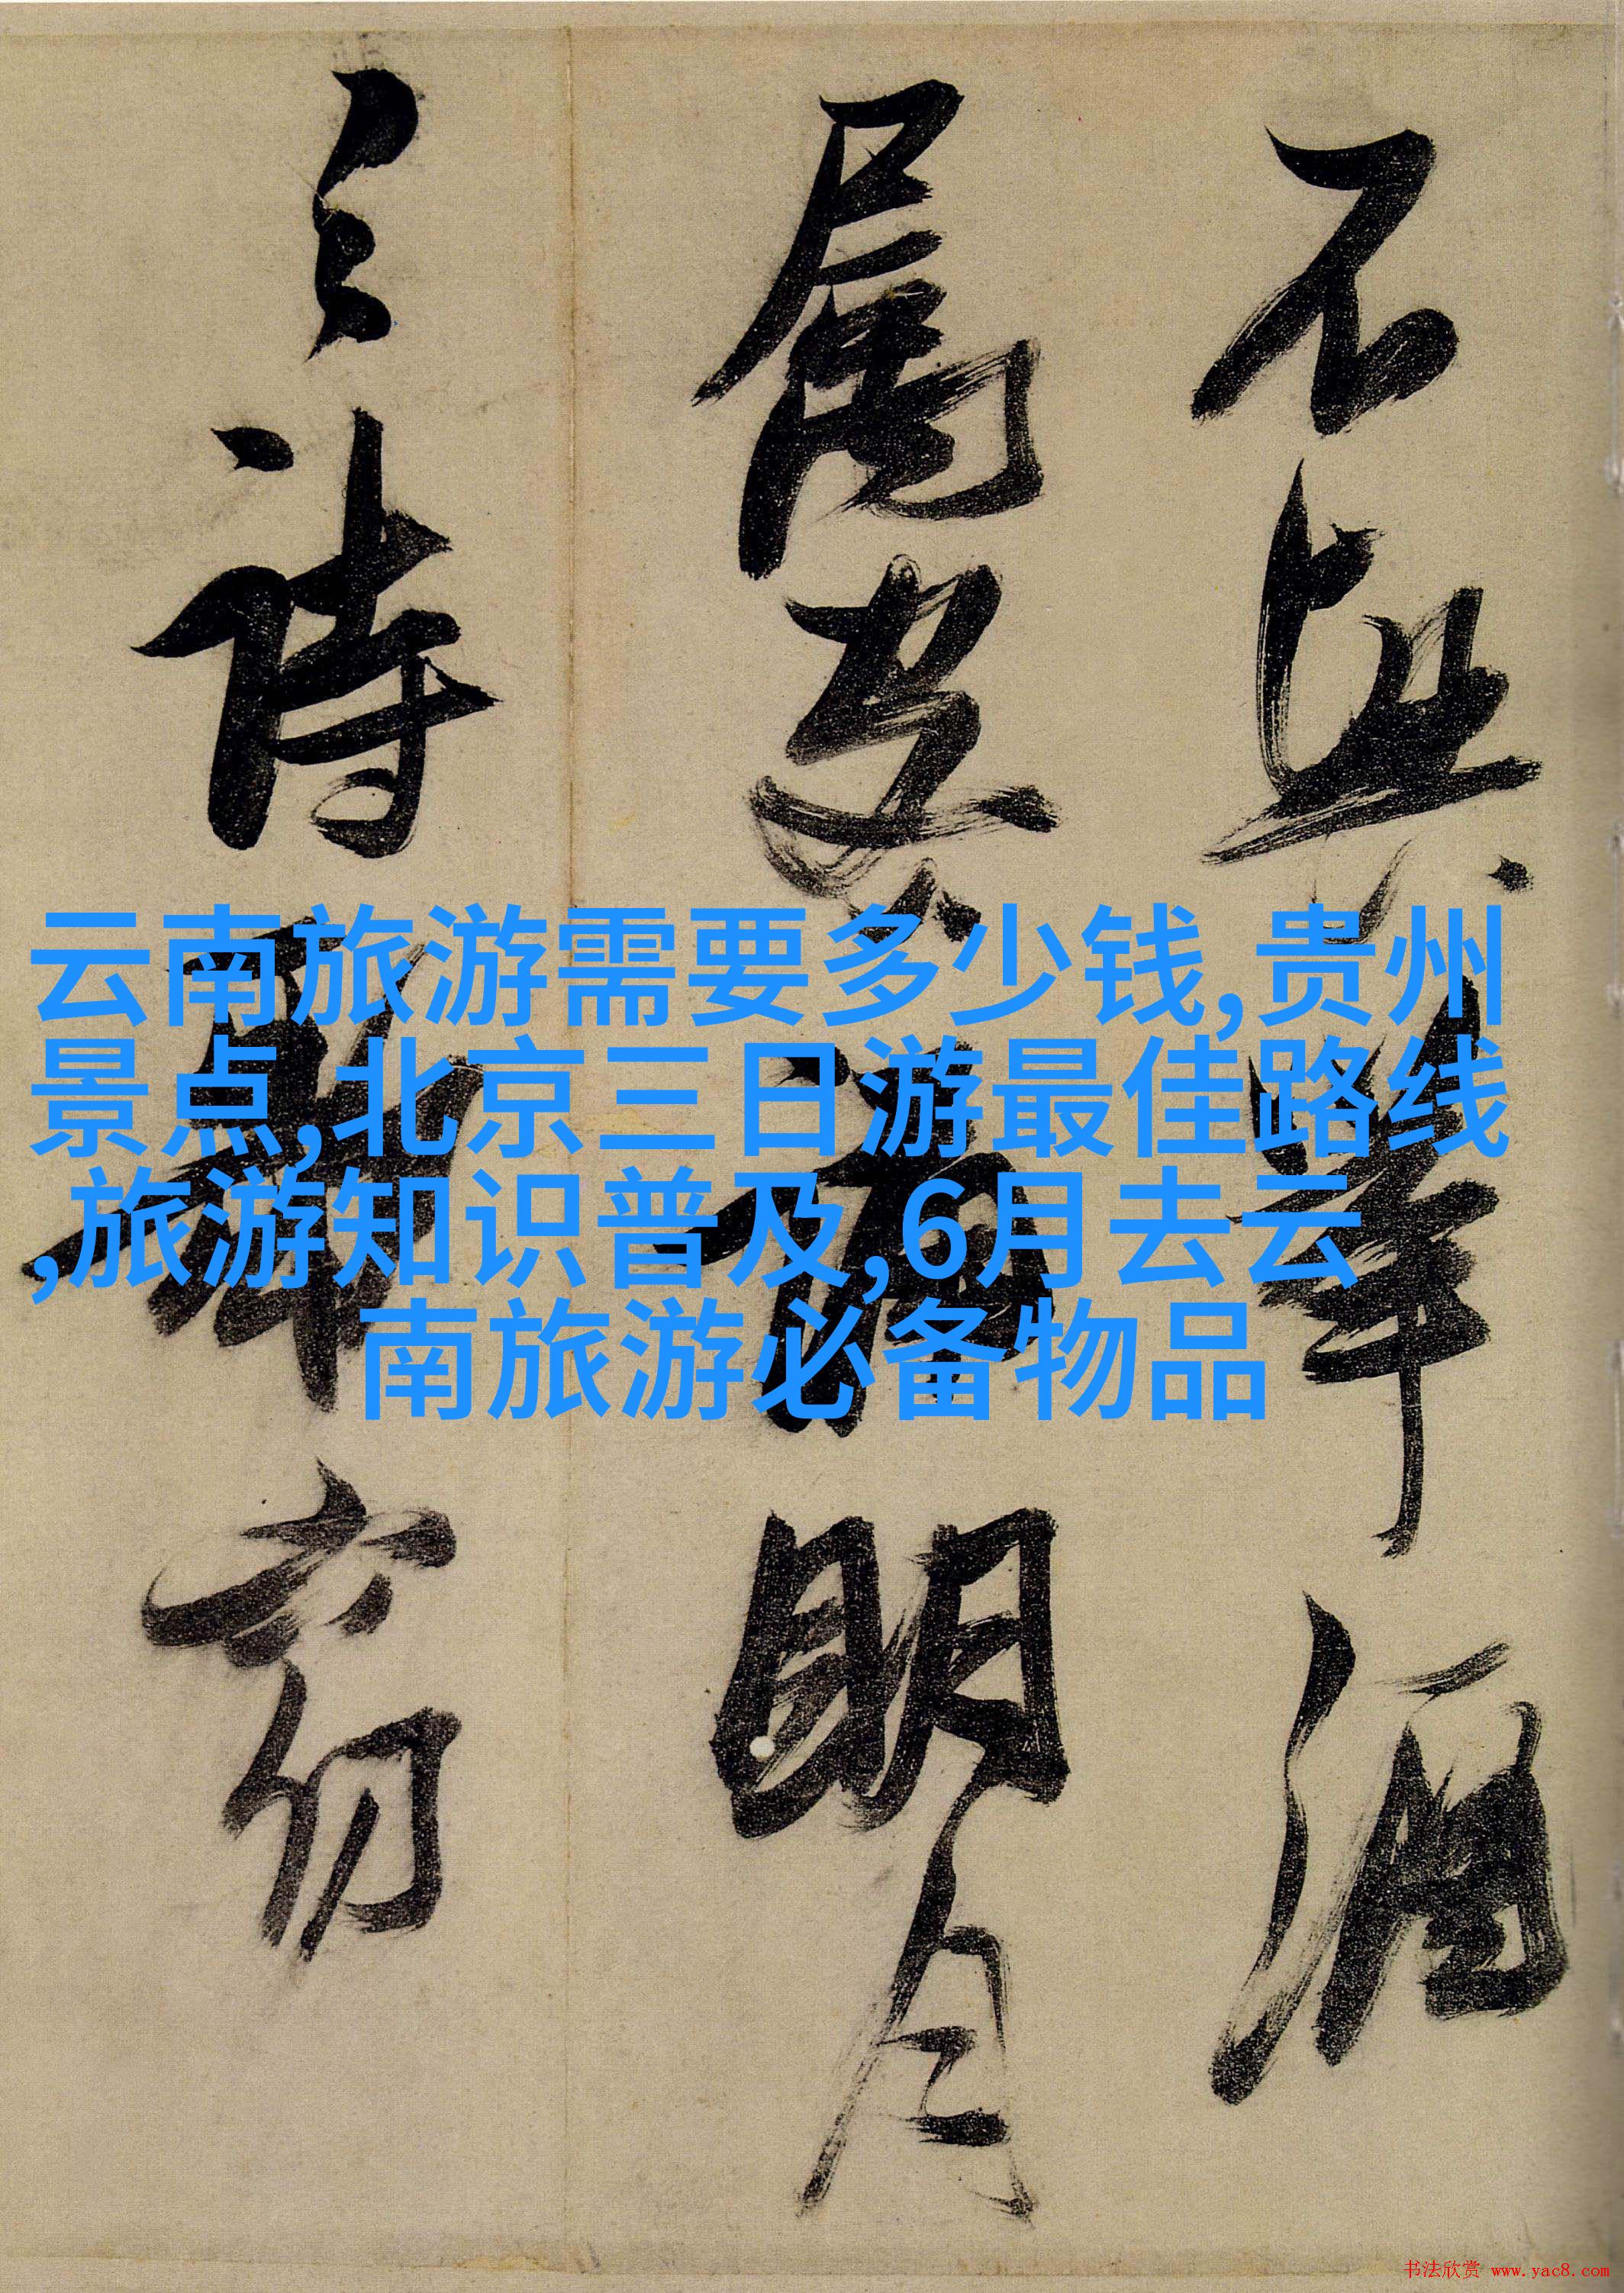 不興舉酒
屬客誦明月
之詩歌窈
云南旅游需要多少钱,贵州
景点,北京三日游最佳路线
,旅游知识普及,6月去云
南旅游必备物品
书法欣赏 www.yac8.com